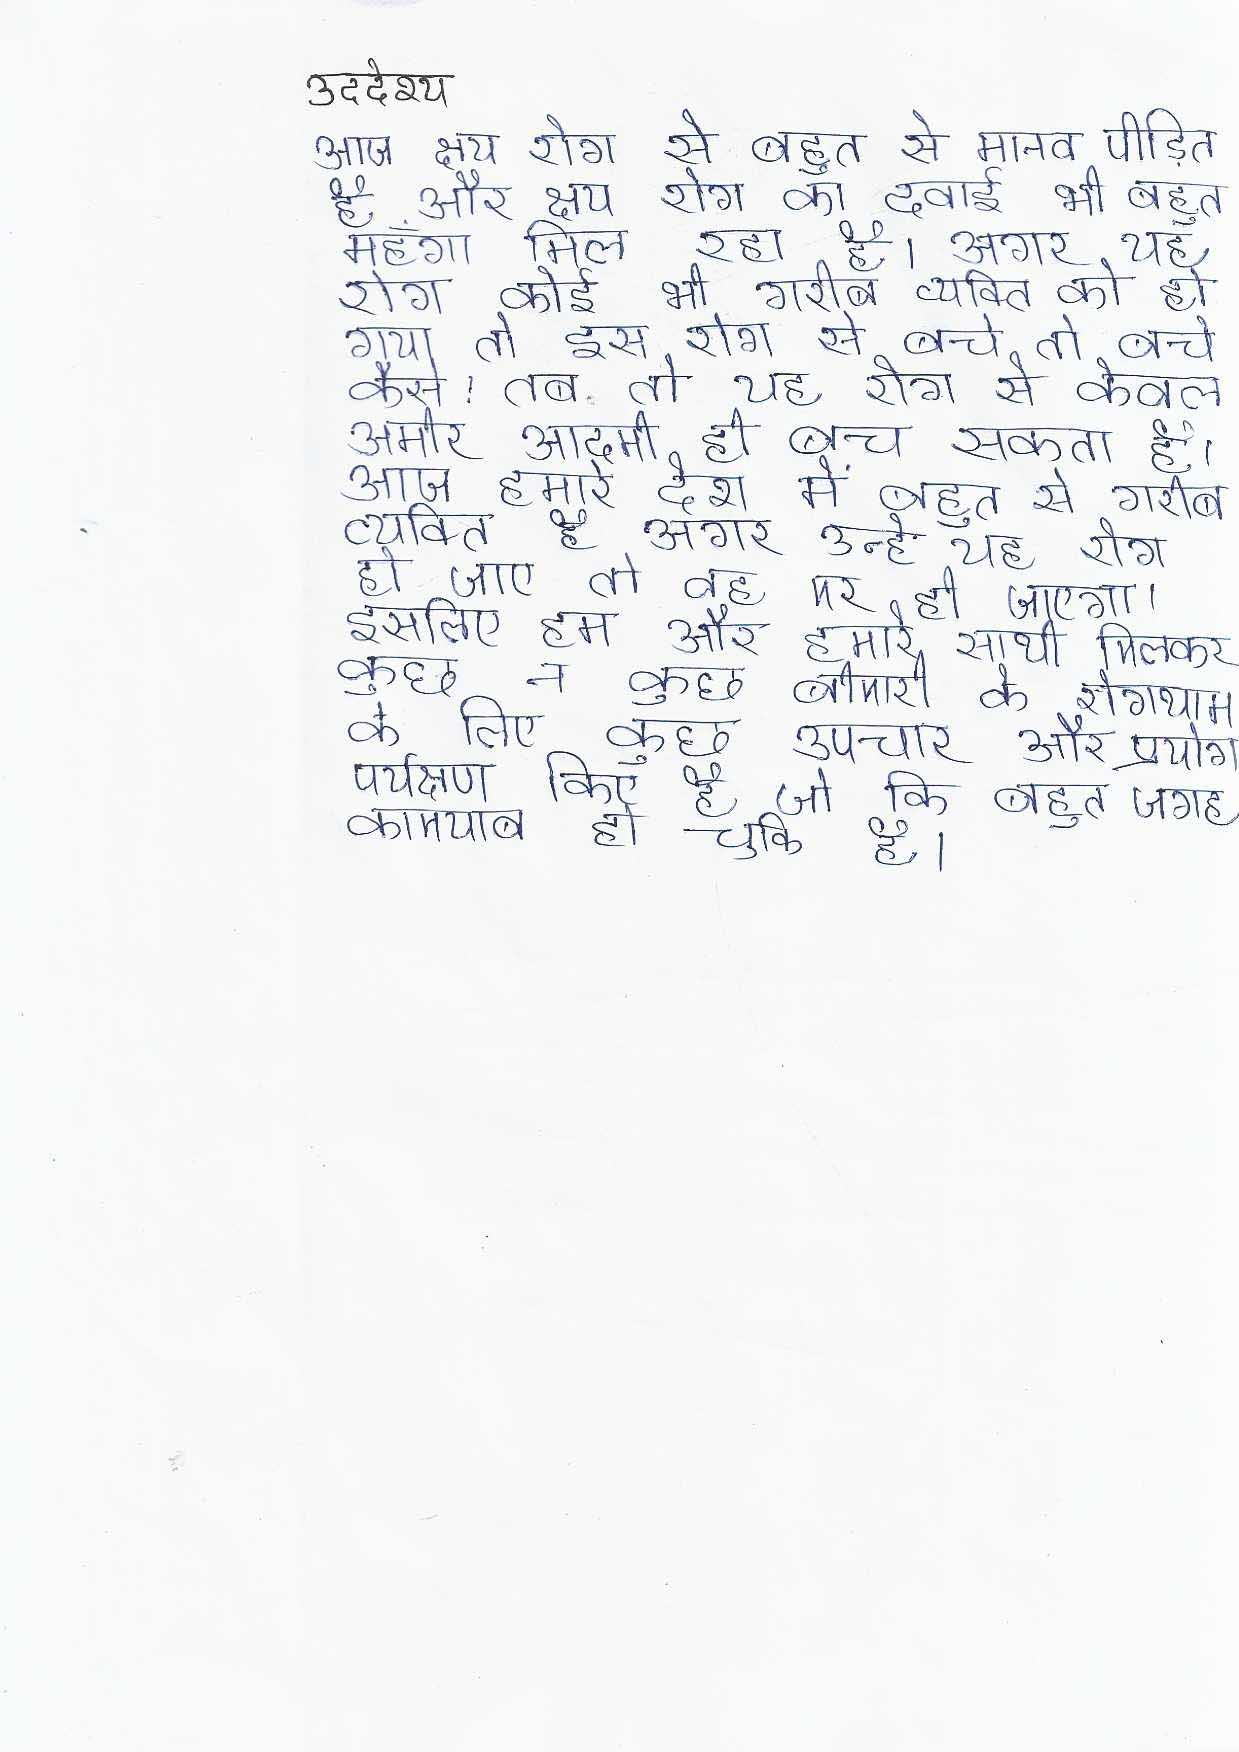 उददेश्य
आज क्षय रोग से बहुत से मानव पीड़ित
है और क्षय रोग का दवाई भी बहुत
महँगा मिल रहा है। अगर यह
रोग कोई भी गरीब व्यक्ति को हो
गया तो इस रोग से बचे तो बचे
कैसे! तब तो यह रोग से केवल
अमीर आदमी ही बच सकता है।
आज हमारे देश में बहुत से गरीब
व्यक्ति है अगर उन्हे यह रोग
हो जाए तो वह मर ही जाएगा।
इसलिए हम और हमारे साथी मिलकर
कुछ न कुछ बीमारी के रोगथाम
के लिए कुछ उपचार और प्रयोग
पर्यक्षण किए है जो कि बहुत जगह
कामयाब हो चुकि है।